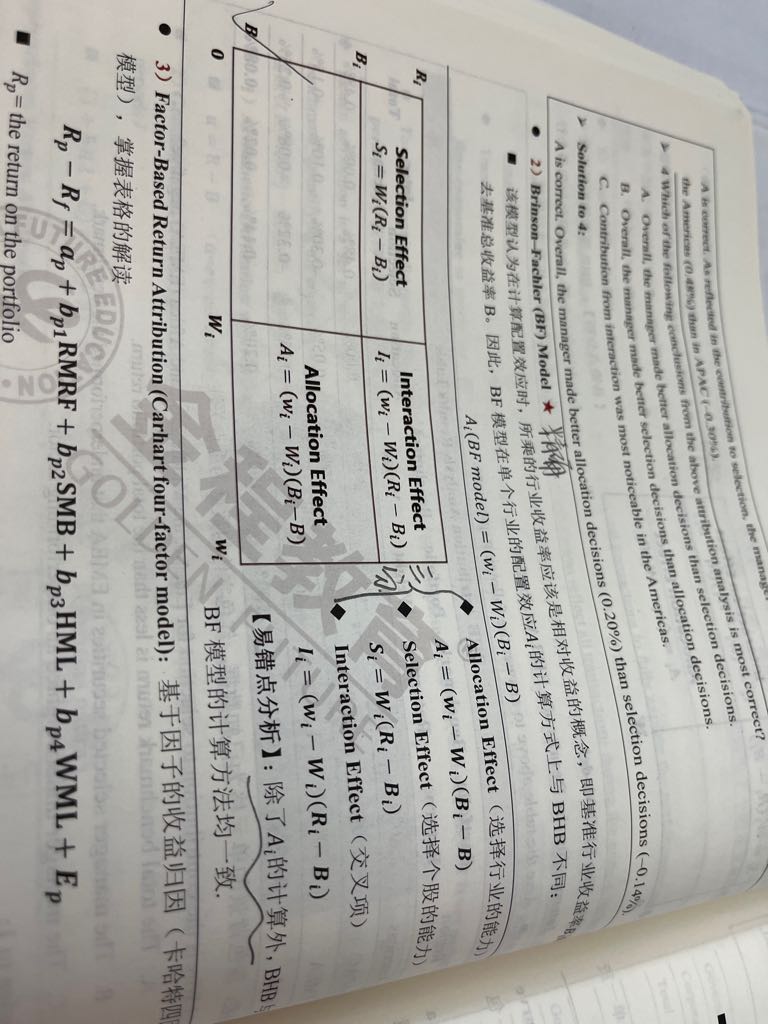 A is correct. As reflected in the contribution to selection, the manager
the Americas (0.48%) than in APAC (-0.30%).
➢ 4 Which of the following conclusions from the above attribution analysis is most correct?
A. Overall, the manager made better allocation decisions than selection decisions.
B. Overall, the manager made better selection decisions than allocation decisions.
C. Contribution from interaction was most noticeable in the Americas.
➢ Solution to 4:
A is correct. Overall, the manager made better allocation decisions (0.20%) than selection decisions (–0.14%).
● 2) Brinson–Fachler (BF) Model ★
■ 该模型认为在计算配置效应时，所乘的行业收益率应该是相对收益的概念，即基准行业收益率
去基准总收益率 B。因此，BF 模型在单个行业的配置效应Ai的计算方式上与 BHB 不同：
Ai(BF model) = (wi − Wi)(Bi − B)
Ri
Bi
B
0
Wi
wi
Selection Effect
Si = Wi(Ri − Bi)
Interaction Effect
Ii = (wi − Wi)(Ri − Bi)
Allocation Effect
Ai = (wi − Wi)(Bi − B)
◆ Allocation Effect（选择行业的能力）
Ai = (wi − Wi)(Bi − B)
◆ Selection Effect（选择个股的能力）
Si = Wi(Ri − Bi)
◆ Interaction Effect（交叉项）
Ii = (wi − Wi)(Ri − Bi)
【易错点分析】：除了Ai的计算外，BHB
BF 模型的计算方法均一致.
● 3）Factor-Based Return Attribution (Carhart four-factor model)：基于因子的收益归因（卡哈特四
模型），掌握表格的解读
Rp − Rf = ap + bp1RMRF + bp2SMB + bp3HML + bp4WML + Ep
■ Rp= the return on the portfolio
金程教育
GOLDEN FUTURE